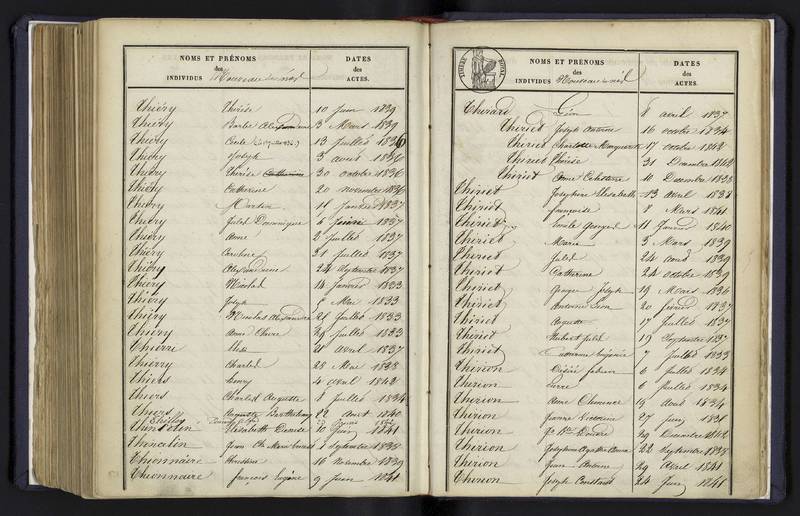 NOMS ET PRÉNOMS
des
INDIVIDUS
DATES
des
ACTES.
Thiéry Thérèse 10 Juin 1839
Thiéry Barbe 3 Mars 1839
Thiéry 13 Juillet 1836
Thiéry Joseph 3 1836
Thiéry Thérèse 30 octobre 1836
Thiéry Catherine 20 novembre 1836
Thiéry 11 Janvier 1837
Thiéry Jules Dominique 1837
Thiéry Anne 2 Juillet 1837
Thiéry Caroline 21 Juillet 1837
Thiéry 24 Septembre 1837
Thiéry Nicolas 14 Janvier 1833
Thiéry Joseph Mai 1833
Thiéry Nicolas Alexandre 21 Juillet 1833
Thiéry 29 Juillet 1833
Thierre 21 avril 1837
Thierry Charles 28 Mai 1838
Thiers henry 4 avril 1842
Thiers Charles Auguste 8 Juillet 1834
Thiers Auguste Barthélemy 22 Aout 1840
Elisabeth Denise 10 Juin 1841
Thincelin Jean 1835
Thionnaire Christine 10 Novembre 1839
Thionnaire françois Eugène 9 Juin 1841
TIMBRE ROYAL
NOMS ET PRÉNOMS
des
INDIVIDUS
DATES
des
ACTES.
Thirard Léon 8 avril 1837
Thiriet Joseph Antoine 16 octobre 1834
Thiriet Charlotte Marguerite 17 octobre 1842
Thiriet Thérèse 31 Décembre 1842
Thiriet Anne Constance 10 Décembre 1838
Thiriet Joséphine Elisabeth 13 avril 1838
Thiriet françoise 8 Mars 1841
Thiriet Emile Georges 11 Janvier 1840
Thiriet Marie 3 Mars 1839
Thiriet Jules 24 août 1839
Thiriet Catherine 24 octobre 1839
Thiriet Joseph 19 Mars 1836
Thiriet Antoine Léon 20 février 1837
Thiriet Auguste 17 Juillet 1837
Thiriet hubert Jules 19 Septembre 1837
Thiriet Catherine Eugénie 7 Juillet 1833
Thirion Désiré 6 Juillet 1834
Thirion Pierre 6 Juillet 1834
Thirion Anne Clémence 19 Aout 1834
Thirion Jeanne Victoire 27 Juin 1831
Thirion 29 Décembre 1842
Thirion Joséphine 22 Septembre 1838
Thirion Jean Antoine 29 Avril 1841
Thirion Joseph Constant 24 Juin 1841